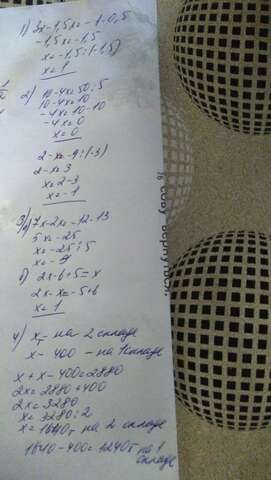 1) 3x-1,5x=-1-0,5
-1,5x=-1,5
x=-1,5:(-1,5)
x=1
2) 10-4x=50:5
10-4x=10
-4x=10-10
-4x=0
x=0
2-x=-9:(-3)
2-x=3
x=2-3
x=-1
3) а) 7x-2x=-12-13
5x=-25
x=-25:5
x=-5
б) 2x-6+5=x
2x-x=-5+6
x=1
4) x т на 2 складе
x-400 - на 1 складе
x+x-400=2880
2x=2880+400
2x=3280
x=3280:2
x=1640т на 2 складе
1640-400=1240т на 1 складе